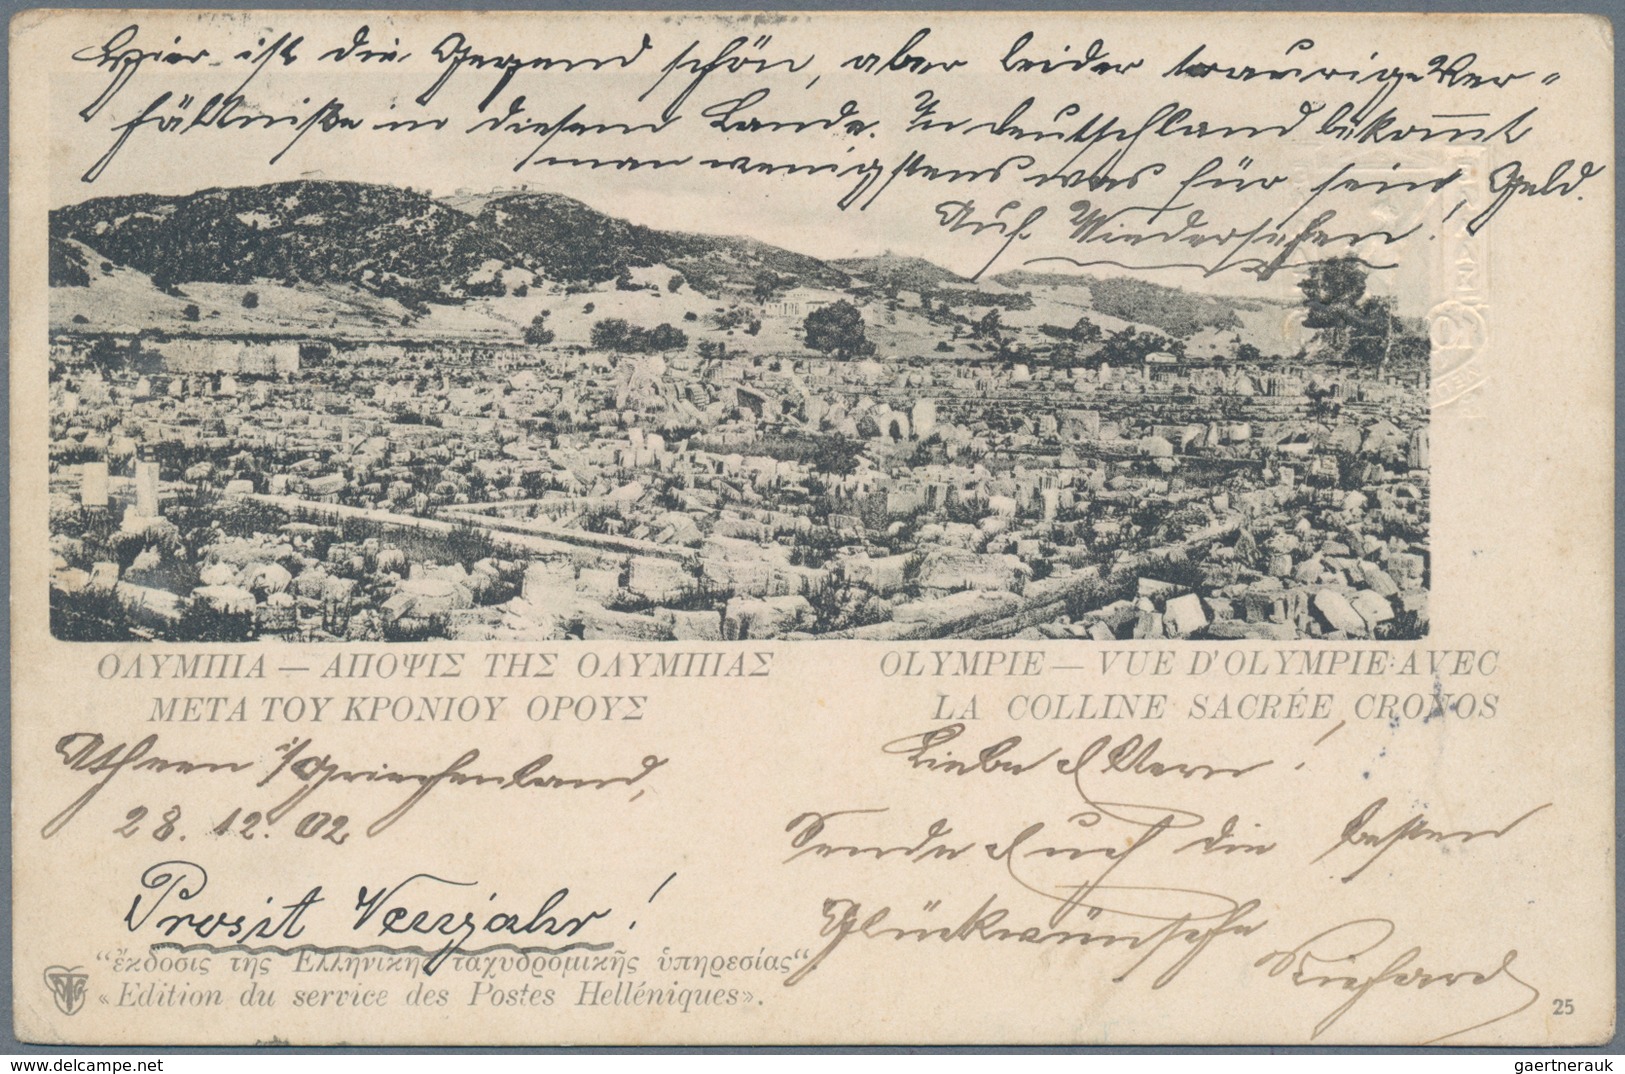 Hier ist die Gegend schön, aber leider traurige Ver=
hältniße in diesem Lande. In Deutschland bekom̅t
man wenigstens was für sein Geld.
Auf Wiedersehen!
ΟΛΥΜΠΙΑ — ΑΠΟΨΙΣ ΤΗΣ ΟΛΥΜΠΙΑΣ
ΜΕΤΑ ΤΟΥ ΚΡΟΝΙΟΥ ΟΡΟΥΣ
OLYMPIE — VUE D'OLYMPIE AVEC
LA COLLINE SACRÉE CRONOS
Athen i/Griechenland,
28. 12. 02
Prosit Neujahr!
Liebe Eltern!
Sende Euch die besten
Glückwünsche
Richard
"ἔκδοσις τῆς Ἑλληνικῆς ταχυδρομικῆς ὑπηρεσίας".
«Edition du service des Postes Helléniques».
25
www.delcampe.net
gaertnerauk